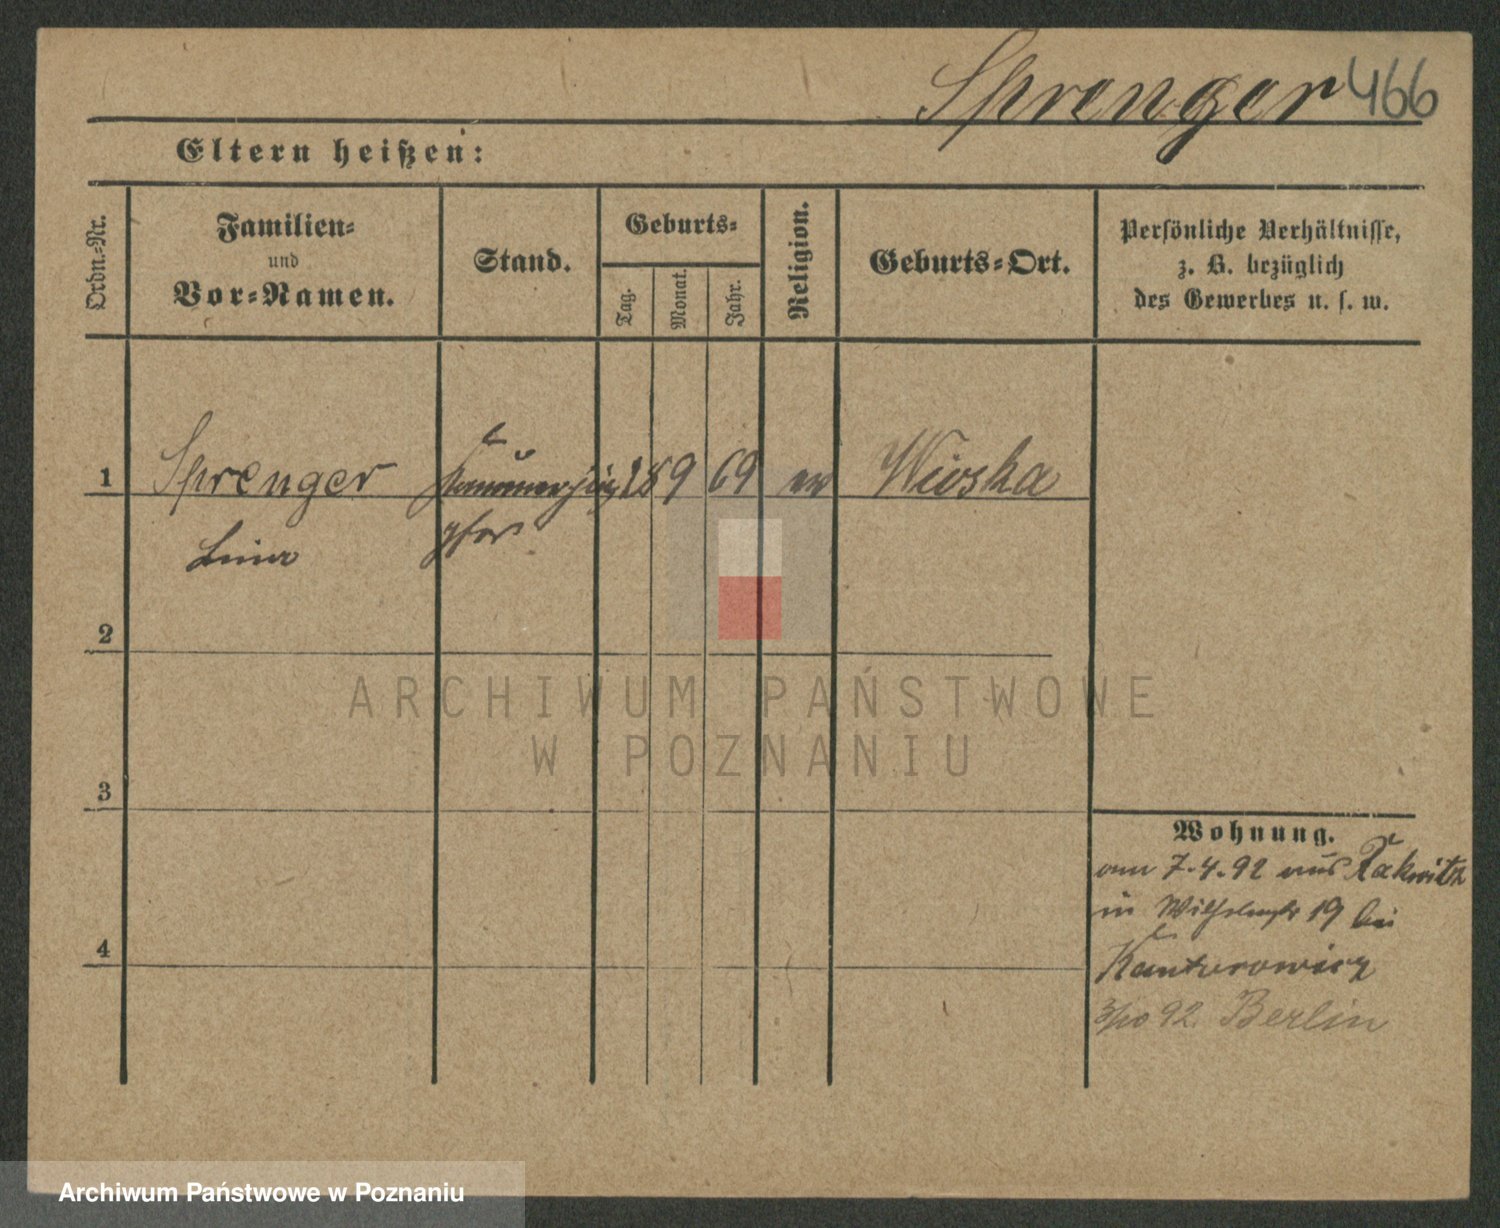 Sprenger 466
Eltern heißen:
Ordn.-Nr.
Familien-
und
Vor-Namen.
Stand.
Geburts-
Tag.
Monat.
Jahr.
Religion.
Geburts-Ort.
Persönliche Verhältnisse,
z. B. bezüglich
des Gewerbes u. s. w.
1 Sprenger 28 9 69 ev Wioska
Lina
2
ARCHIWUM PAŃSTWOWE
W POZNANIU
3
4
Wohnung.
am 7.4.92 aus Rakwitz
in Wilhelmstr 19 bei
Kantorowicz
3/10 92. Berlin
Archiwum Państwowe w Poznaniu